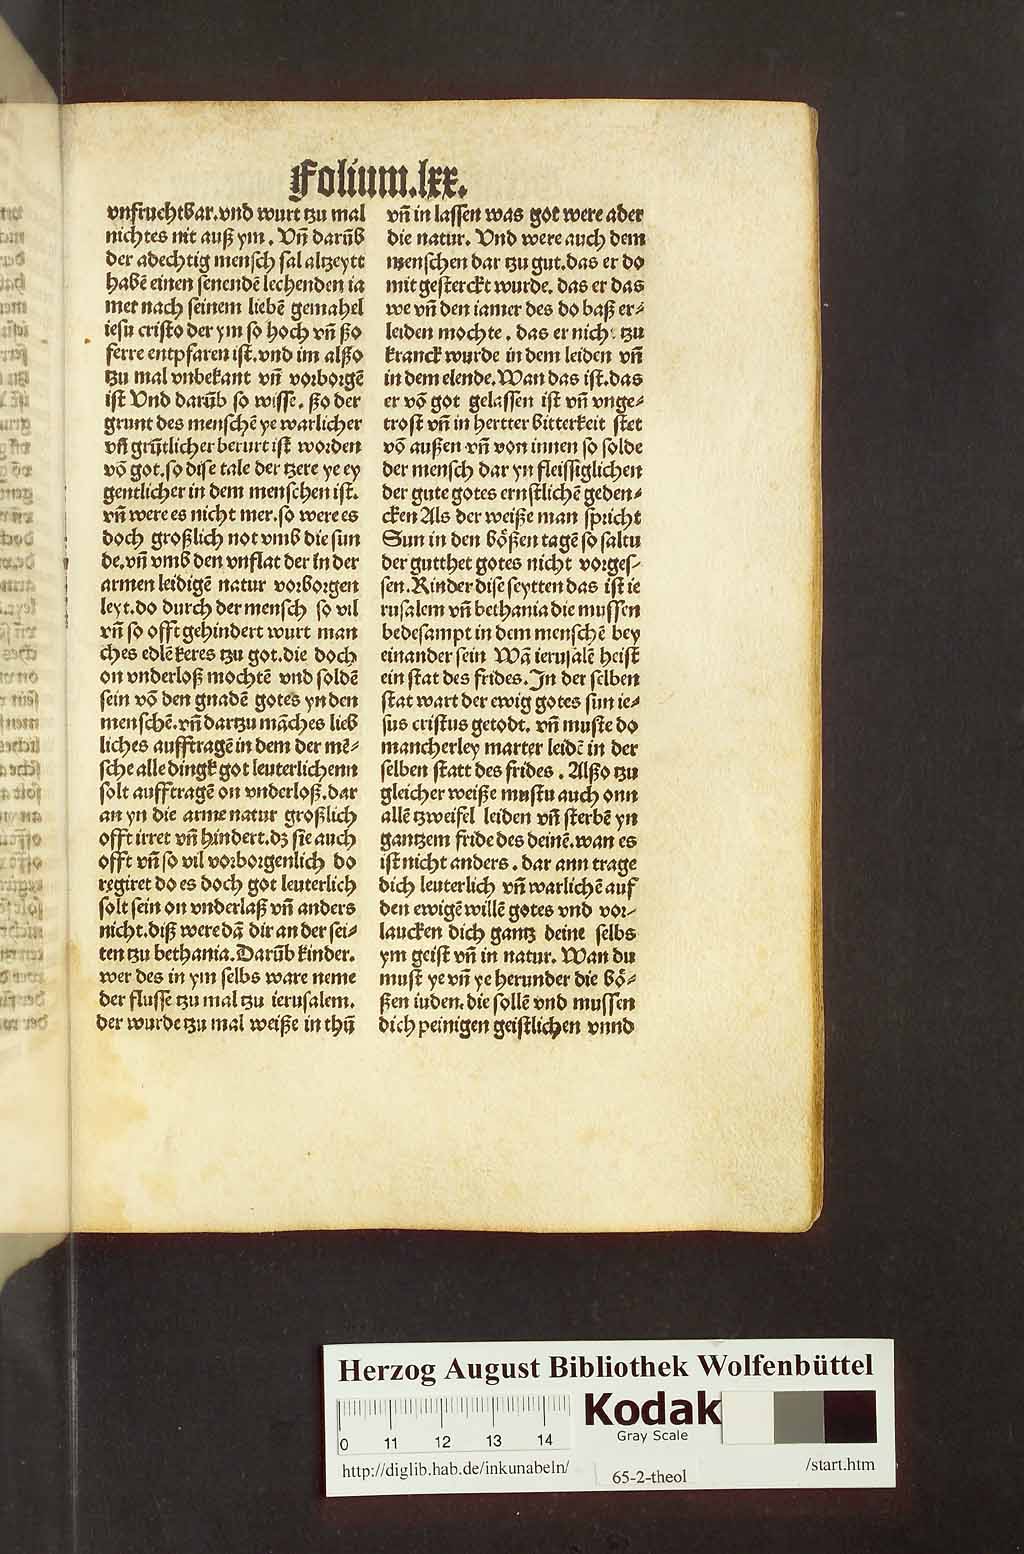 Folium.lxx.
vnfruchtbar.vnd wurt tzu mal
nichtes nit auß ym. Vñ darũb
der adechtig mensch sal altzeytt
habẽ einen senendẽ lechenden ia
mer nach seinem liebẽ gemahel
iesu cristo der ym so hoch vñ ßo
ferre entpfaren ist.vnd im alßo
tzu mal vnbekant vñ vorborgẽ
ist Vnd darũb so wisse. ßo der
grunt des menschẽ ye warlicher
vñ grũtlicher berurt ist worden
võ got.so dise tale der tzere ye ey
gentlicher in dem menschen ist.
vñ were es nicht mer.so were es
doch großlich not vmb die sun
de.vñ vmb den vnflat der in der
armen leidigẽ natur vorborgen
leyt.do durch der mensch so vil
vñ so offt gehindert wurt man
ches edlẽ keres tzu got.die doch
on vnderloß mochtẽ vnd soldẽ
sein võ den gnadẽ gotes yn den
menschẽ.vñ dartzu mãches lieb
liches aufftragẽ in dem der mẽ-
sche alle dingk got leuterlichenn
solt aufftragẽ on vnderloß.dar
an yn die arme natur großlich
offt irret vñ hindert.dz sie auch
offt vñ so vil vorborgenlich do
regiret do es doch got leuterlich
solt sein on vnderlaß vñ anders
nicht.diß were dã dir an der sei-
ten tzu bethania.Darũb kinder.
wer des in ym selbs ware neme
der flusse tzu mal tzu ierusalem.
der wurde tzu mal weiße in thũ
vñ in lassen was got were ader
die natur. Vnd were auch dem
menschen dar tzu gut.das er do
mit gesterckt wurde. das er das
we vñ den iamer des do baß er-
leiden mochte. das er nicht tzu
kranck wurde in dem leiden vñ
in dem elende.Wan das ist.das
er võ got gelassen ist vñ vnge-
trost vñ in hertter bitterkeit stet
võ außen vñ von innen so solde
der mensch dar yn fleissiglichen
der gute gotes ernstlichẽ geden-
cken Als der weiße man spricht
Sun in den bößen tagẽ so saltu
der gutthet gotes nicht vorges-
sen.Kinder dise seytten das ist ie
rusalem vñ bethania die mussen
bedesampt in dem menschẽ bey
einander sein Wã ierusalẽ heist
ein stat des frides.In der selben
stat wart der ewig gotes sun ie-
sus cristus getodt. vñ muste do
mancherley marter leidẽ in der
selben statt des frides. Alßo tzu
gleicher weiße mustu auch onn
allẽ tzweifel leiden vñ sterbẽ yn
gantzem fride des deinẽ.wan es
ist nicht anders. dar ann trage
dich leuterlich vñ warlichẽ auf
den ewigẽ willẽ gotes vnd vor-
laucken dich gantz deine selbs
ym geist vñ in natur. Wan du
must ye vñ ye herunder die bö-
ßen iuden.die sollẽ vnd mussen
dich peinigen geistlichen vnnd
Herzog August Bibliothek Wolfenbüttel
0 11 12 13 14
Kodak
Gray Scale
http://diglib.hab.de/inkunabeln/
65-2-theol
/start.htm